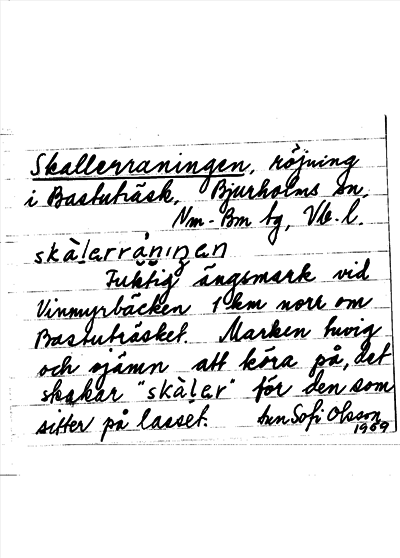 Skallerraningen, röjning
i Bastuträsk, Bjurholms sn,
Nm-Bm tg, Vb. l.
skàlarrånıŋan
Fuktig ängsmark vid
Vinmyrbäcken 1 km norr om
Bastuträsket. Marken tuvig
och ojämn att köra på, det
skakar "skàlar" för den som
sitter på lasset. Ann Sofi Olsson
1969